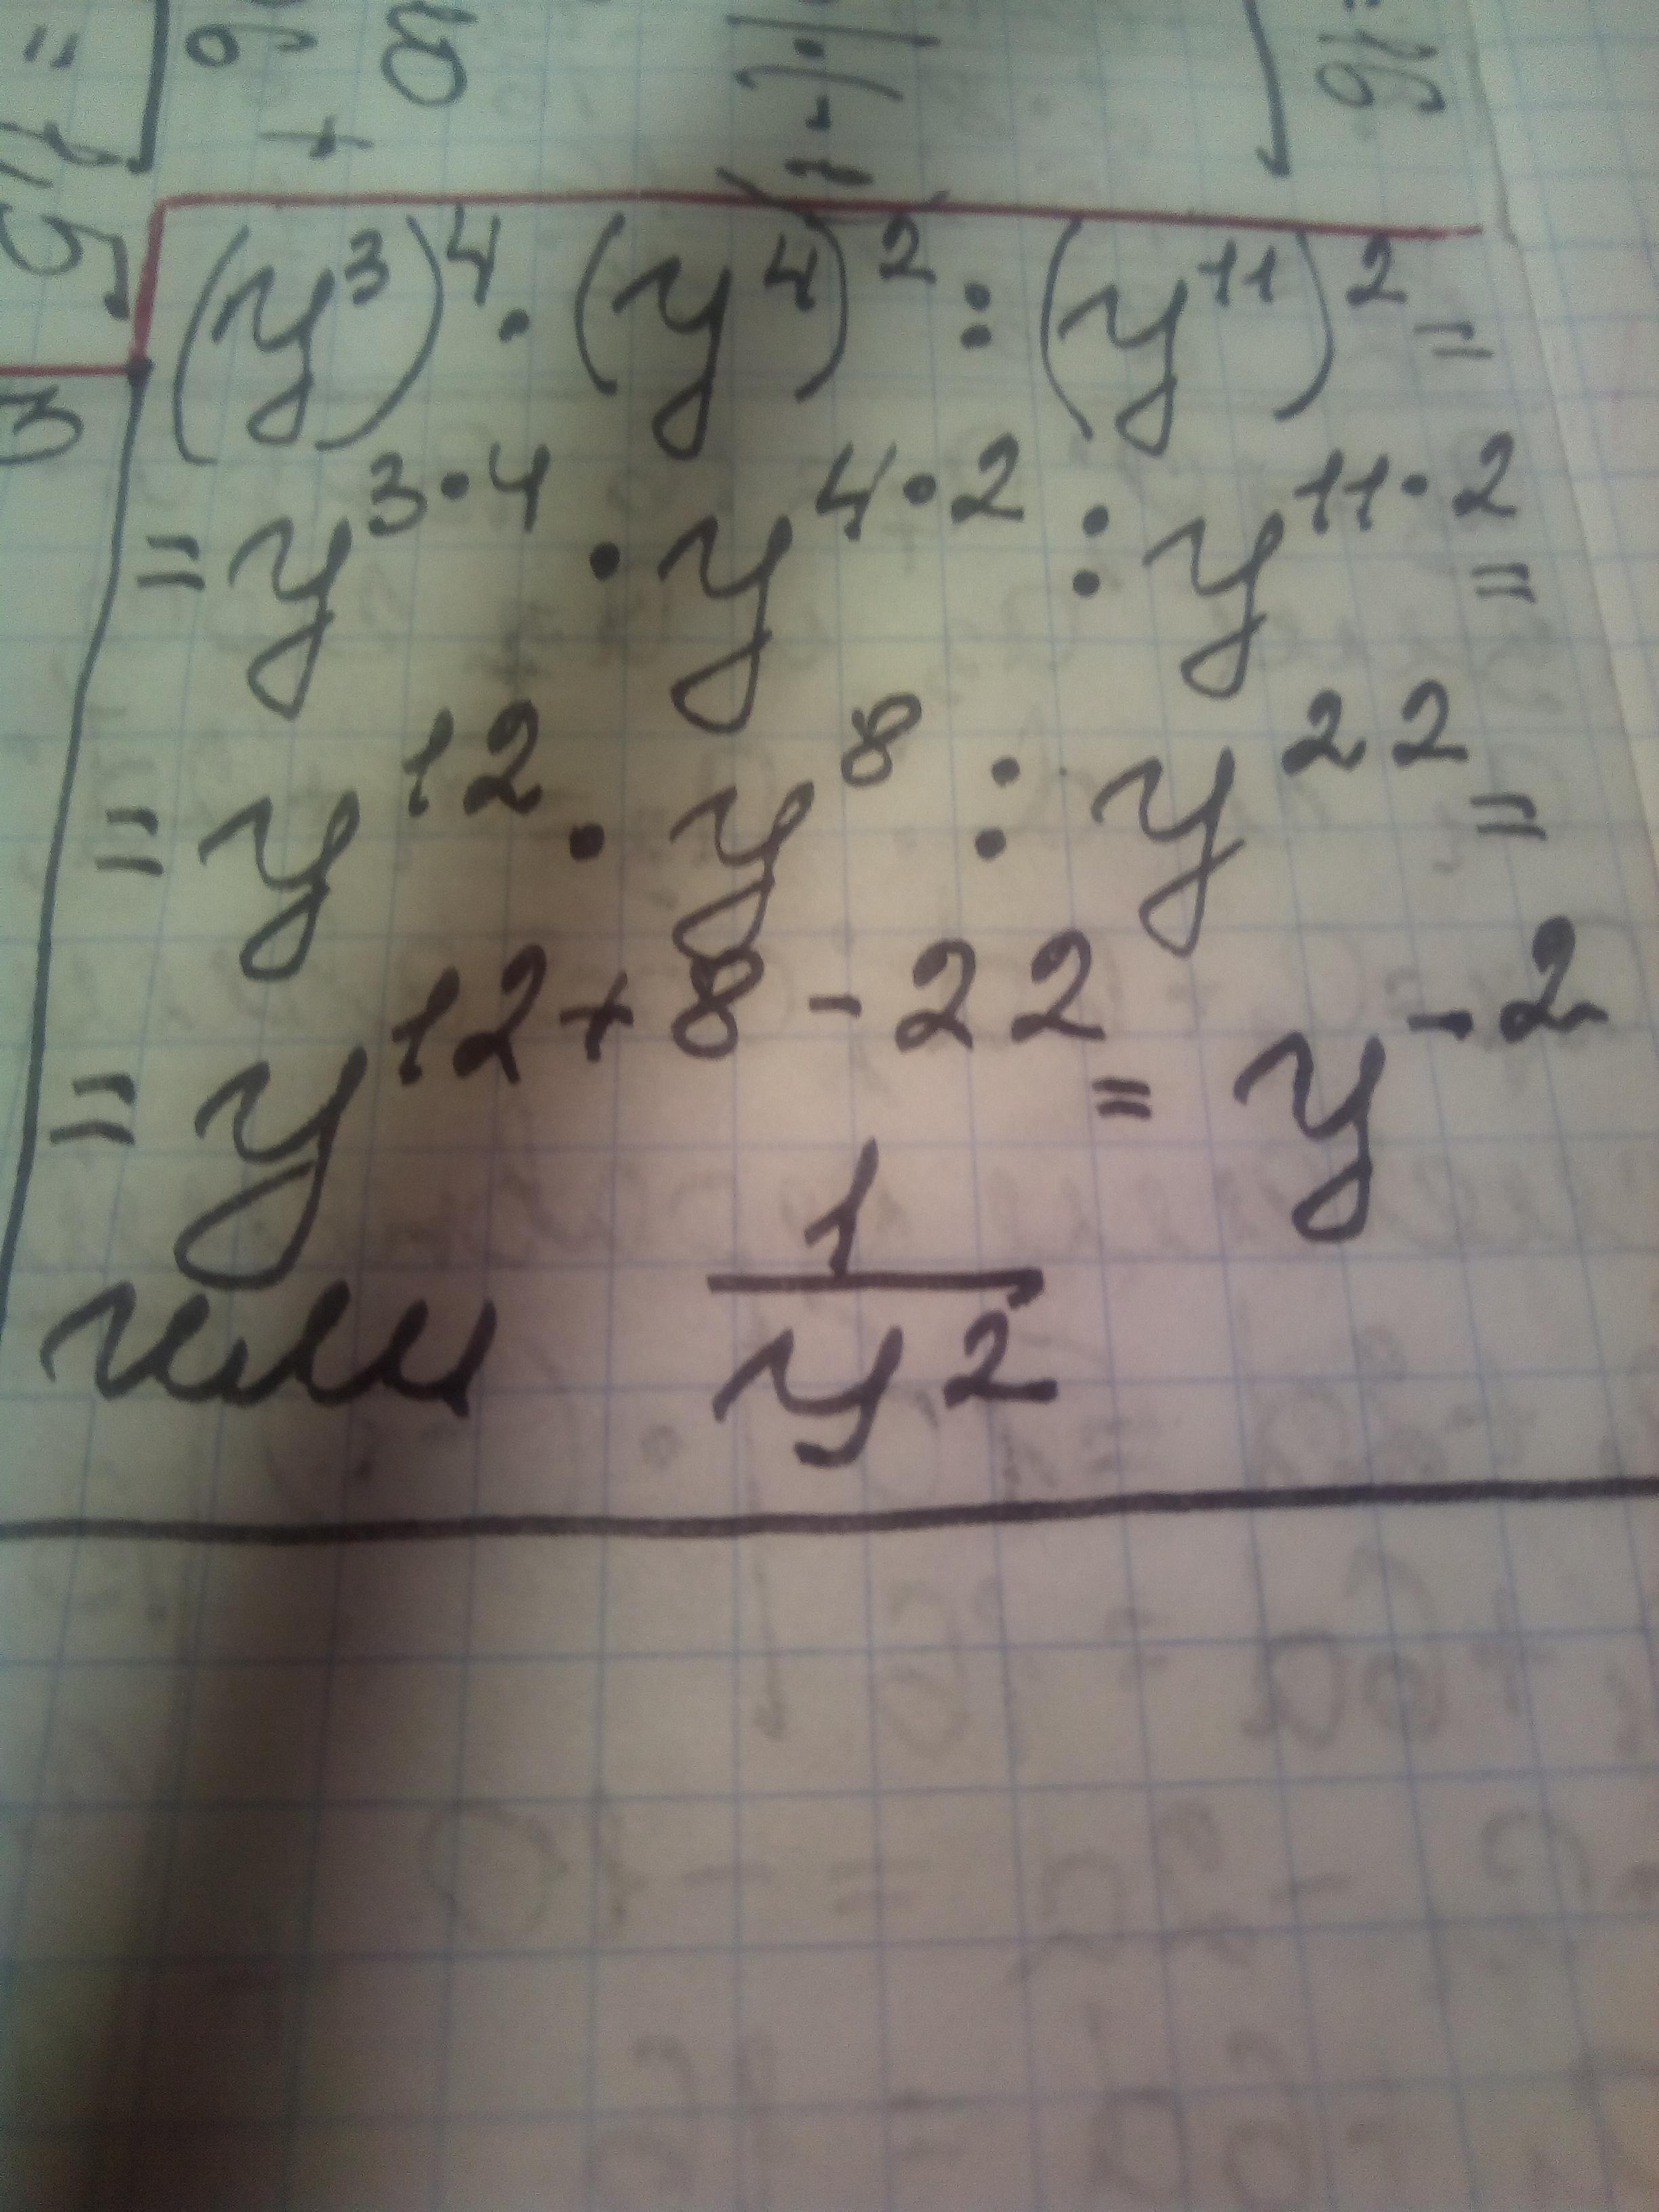 (y³)⁴ · (y⁴)² : (y¹¹)² =
= y³·⁴ · y⁴·² : y¹¹·² =
= y¹² · y⁸ : y²² =
= y¹²⁺⁸⁻²² = y⁻²
или 1/y²